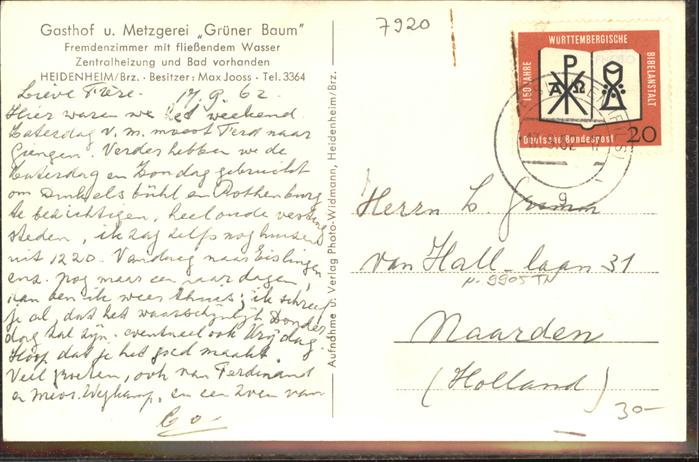 Gasthof u. Metzgerei „Grüner Baum"
Fremdenzimmer mit fließendem Wasser
Zentralheizung und Bad vorhanden
HEIDENHEIM/Brz. · Besitzer: Max Jooss · Tel. 3364
Lieve Frère. 17.9.62.
Hier waren we het weekend.
Zaterdag v.m. moest Ferd naar
Giengen. Verder hebben we de
Zaterdag en Zondag gebruikt
om Dinkelsbühl en Rothenburg
te bezichtigen, heel oude vesting
steden, ik zag zelfs nog huizen
uit 1220. Vandaag naar Eislingen
enz. nog maar een paar dagen,
dan ben ik weer thuis; ik schreef
je al, dat het waarschijnlijk Donder
dag zal zijn. eventueel ook Vrijdag.
Hoop dat je het goed maakt.
Veel groeten, ook van Ferdinand
en Mevr. en een zoen van
Co-
Aufnahme u. Verlag Photo-Widmann, Heidenheim/Brz.
7920
150 JAHRE WÜRTTEMBERGISCHE BIBELANSTALT
P
A Ω
Deutsche Bundespost 20
g
Herrn
van Hall-laan 31
Naarden
(Holland)
30-